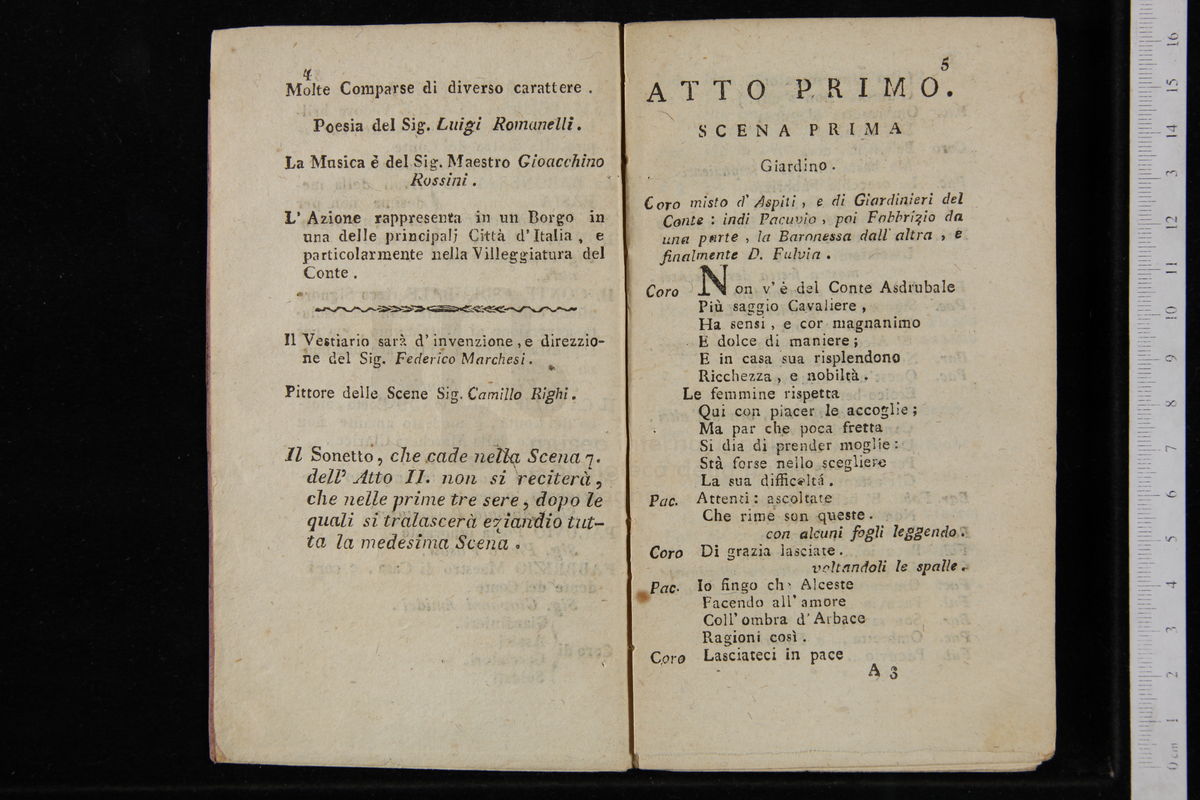 4
Molte Comparse di diverso carattere .
Poesia del Sig. Luigi Romanelli .
La Musica è del Sig. Maestro Gioacchino
Rossini .
L' Azione rappresenta in un Borgo in
una delle principali Città d' Italia , e
particolarmente nella Villeggiatura del
Conte .
Il Vestiario sarà d' invenzione , e direzzio-
ne del Sig. Federico Marchesi .
Pittore delle Scene Sig. Camillo Righi .
Il Sonetto, che cade nella Scena 7.
dell' Atto II. non si reciterà ,
che nelle prime tre sere , dopo le
quali si tralascerà eziandio tut-
ta la medesima Scena .
5
ATTO PRIMO.
SCENA PRIMA
Giardino .
Coro misto d' Aspiti , e di Giardinieri del
Conte : indi Pacuvio , poi Fabbrizio da
una parte , la Baronessa dall' altra , e
finalmente D. Fulvia .
Coro Non v' è del Conte Asdrubale
Più saggio Cavaliere ,
Ha sensi , e cor magnanimo
E dolce di maniere ;
E in casa sua risplendono
Ricchezza , e nobiltà .
Le femmine rispetta
Qui con piacer le accoglie ;
Ma par che poca fretta
Si dia di prender moglie :
Stà forse nello scegliere
La sua difficoltá .
Pac. Attenti : ascoltate
Che rime son queste .
con alcuni fogli leggendo .
Coro Di grazia lasciate .
voltandoli le spalle .
Pac. Io fingo ch' Alceste
Facendo all' amore
Coll' ombra d' Arbace
Ragioni così .
Coro Lasciateci in pace
A 3
16
15
14
13
12
11
10
9
8
7
6
5
4
3
2
1
0 cm